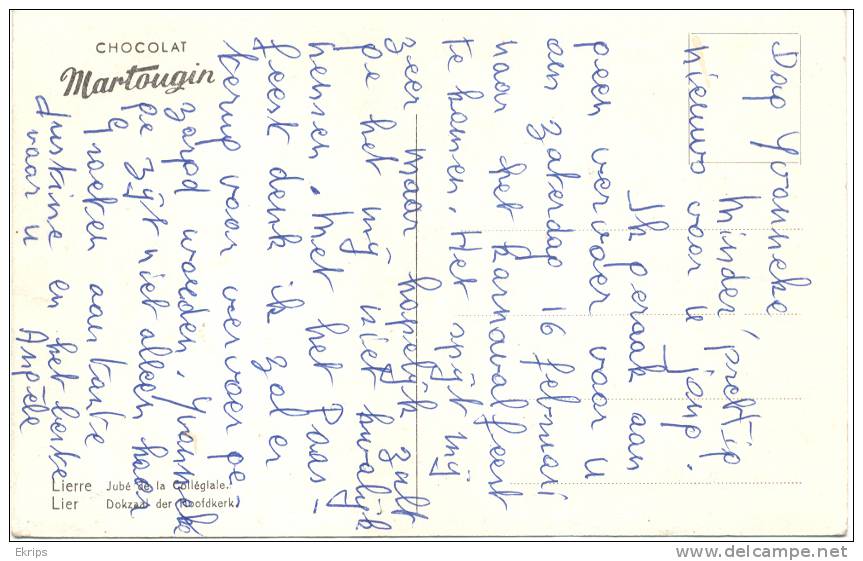 CHOCOLAT
Martougin
Dag Yvanneke
Minder prettig
nieuws voor u Janp.
Ik geraak aan
geen vervoer voor u
om zaterdag 16 februari
naar het karnavalfeest
te komen. Het spijt mij
zeer maar hopelijk zult
ge het mij niet kwalijk
nemen. Met het Paas-
feest denk ik zal er
terug voor vervoer ge-
zorgd worden. Yvanneke
ge zijt niet alleen hoor
Groeten aan tante
Justine en het beste
voor u
Angèle
Lierre Jubé de la Collégiale.
Lier Dokzaal der Hoofdkerk.
Ekrips
www.delcampe.net